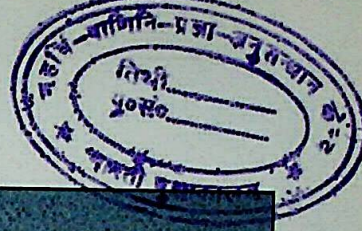 महर्षि-पाणिनि-प्रज्ञा-अनुसन्धान केन्द्र
तिथी
पु०सं०